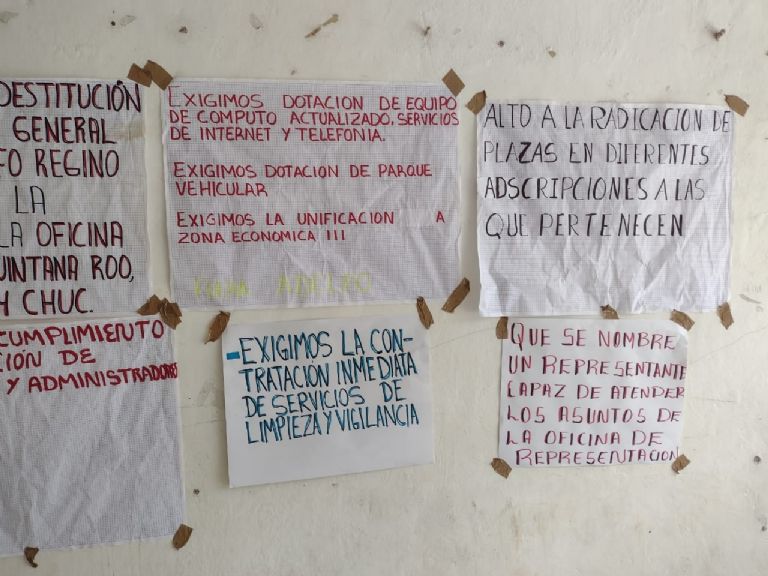 DESTITUCIÓN
GENERAL
FO REGINO
LA
LA OFICINA
UINTANA ROO,
CHUC.
EXIGIMOS DOTACION DE EQUIPO
DE COMPUTO ACTUALIZADO, SERVICIOS
DE INTERNET Y TELEFONIA.
EXIGIMOS DOTACION DE PARQUE
VEHICULAR
EXIGIMOS LA UNIFICACION A
ZONA ECONOMICA III
ADELFO
ALTO A LA RADICACION DE
PLAZAS EN DIFERENTES
ADSCRIPCIONES A LAS
QUE PERTENECEN
CUMPLIMIENTO
CIÓN DE
Y ADMINISTRADORES
-EXIGIMOS LA CON-
TRATACIÓN INMEDIATA
DE SERVICIOS DE
LIMPIEZA Y VIGILANCIA
QUE SE NOMBRE
UN REPRESENTANTE
CAPAZ DE ATENDER
LOS ASUNTOS DE
LA OFICINA DE
REPRESENTACION